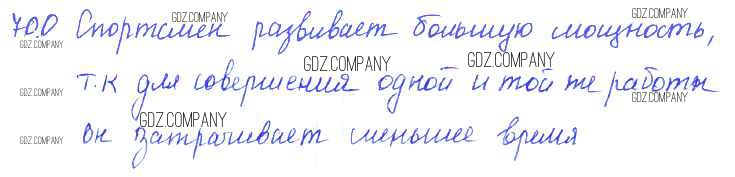 700 Спортсмен развивает большую мощность,
т.к для совершения одной и той же работы
он затрачивает меньшее время
GDZ.COMPANY
GDZ.COMPANY
GDZ.COMPANY
GDZ.COMPANY
GDZ.COMPANY
GDZ.COMPANY
GDZ.COMPANY
GDZ.COMPANY
GDZ.COMPANY